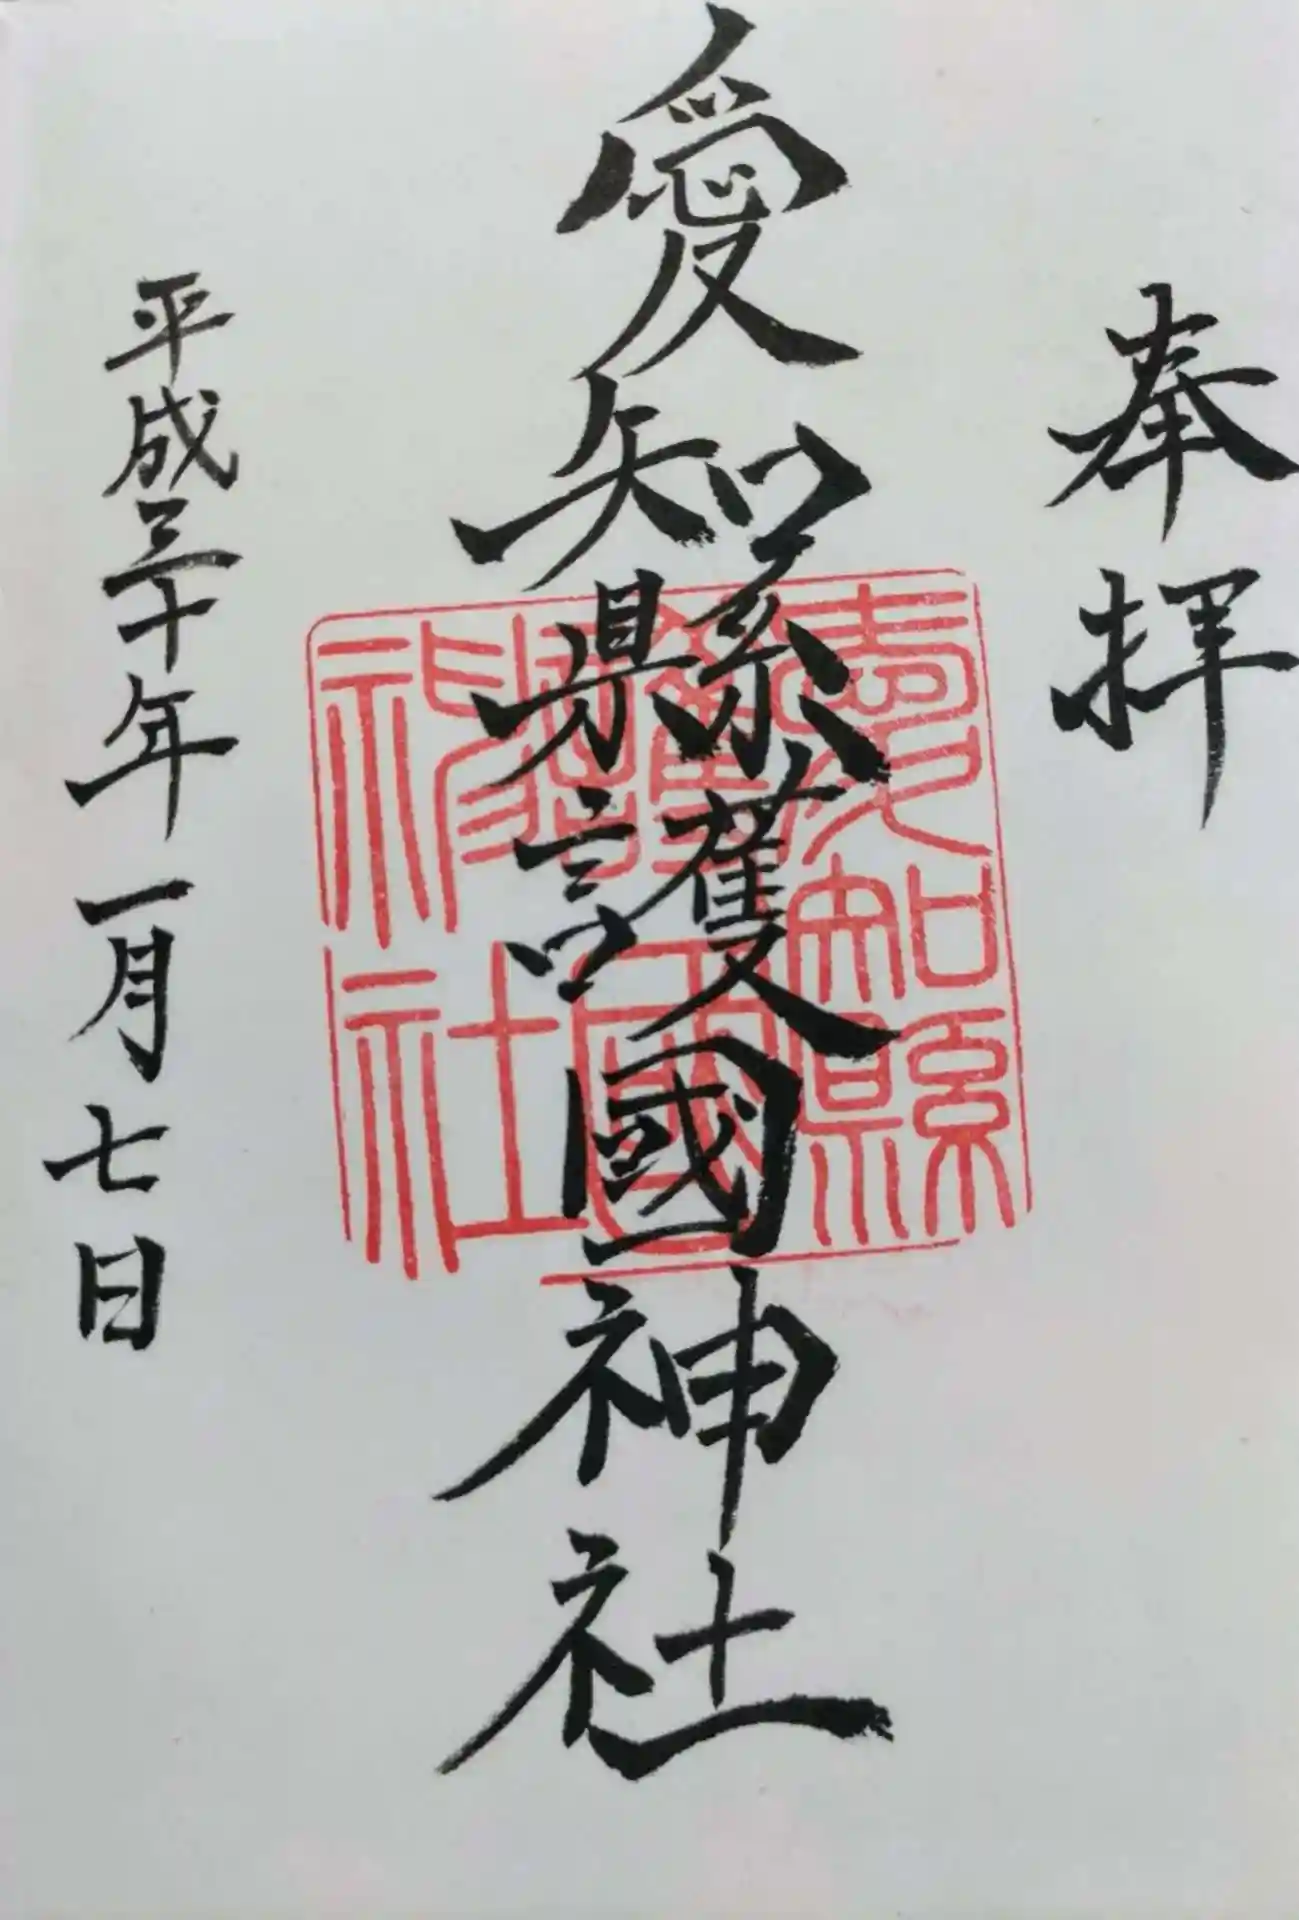 奉拝
愛知縣護國神社
愛知縣
護國
神社
平成三十年一月七日